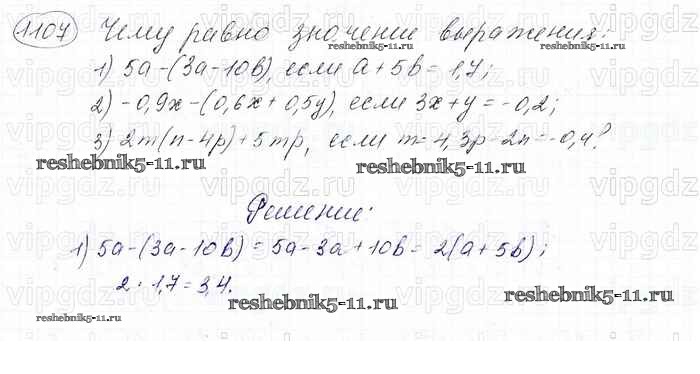 1107 Чему равно значение выражения:
reshebnik5-11.ru
1) 5a-(3a-10b), если a+5b=1,7;
2) -0,9x-(0,6x+0,5y), если 3x+y=-0,2;
3) 2m(n-4p)+5mp, если m=4, 3p-2n=-0,4?
reshebnik5-11.ru reshebnik5-11.ru
Решение:
1) 5a-(3a-10b)=5a-3a+10b=2(a+5b);
2·1,7=3,4.
reshebnik5-11.ru reshebnik5-11.ru
reshebnik5-11.ru
vipgdz.ru